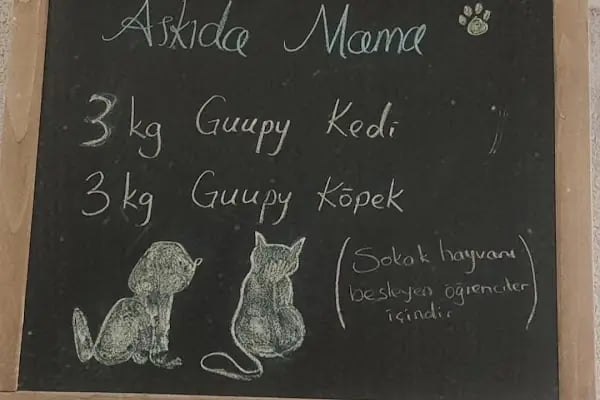 Askıda Mama
3 kg Guupy Kedi
3 kg Guupy Köpek
(Sokak hayvanı
besleyen öğrenciler
içindir)